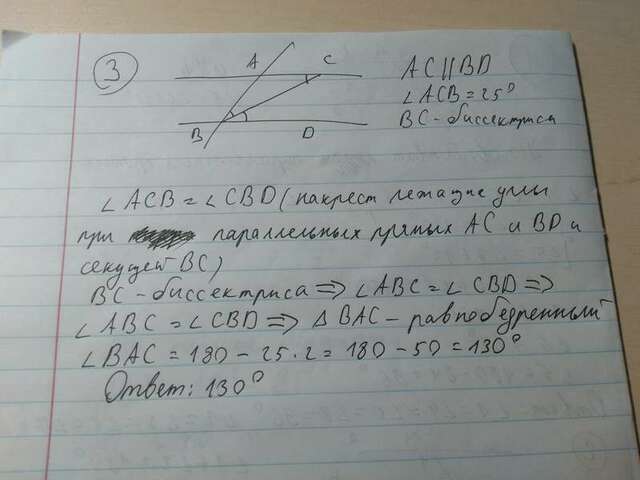 3
A C
B D
AC||BD
∠ACB=25°
BC-биссектриса
∠ACB=∠CBD(накрест лежащие углы
при параллельных прямых AC и BD и
секущей BC)
BC-биссектриса⇒∠ABC=∠CBD⇒
∠ABC=∠CBD⇒ΔBAC-равнобедренный
∠BAC=180-25·2=180-50=130°
Ответ: 130°